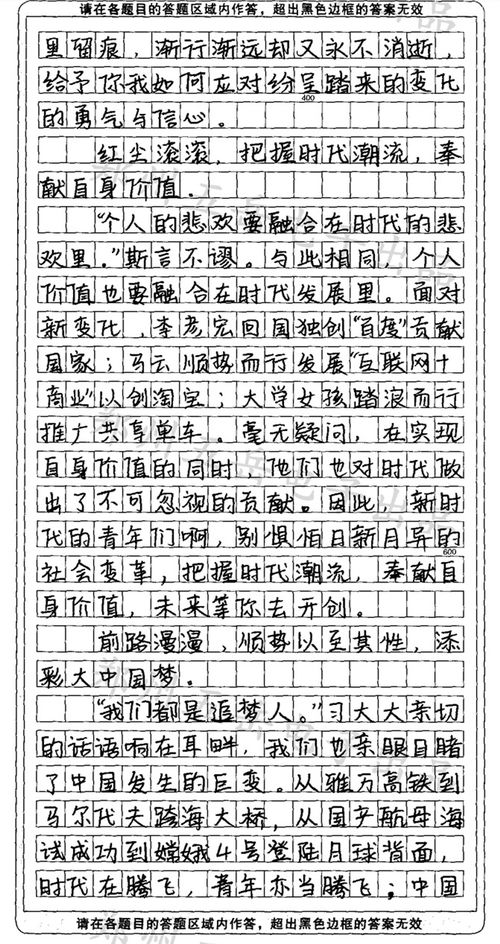 请在各题目的答题区域内作答，超出黑色边框的答案无效
里留痕，渐行渐远却又永不消逝，
给予你我如何应对纷呈踏来的变化
400
的勇气与信心。
红尘滚滚，把握时代潮流，奉
献自身价值．
“个人的悲欢要融合在时代的悲
欢里。”斯言不谬。与此相同，个人
价值也要融合在时代发展里。面对
新变化，李彦宏回国独创“百度”贡献
国家；马云顺势而行发展“互联网十
商业”以创淘宝；大学女孩踏浪而行
推广共享单车。毫无疑问，在实现
自身价值的同时，他们也对时代做
出了不可忽视的贡献。因此，新时
代的青年们啊，别惧怕日新月异的
600
社会变革，把握时代潮流，奉献自
身价值，未来等你去开创。
前路漫漫，顺势以至其性，添
彩大中国梦．
“我们都是追梦人。”习大大亲切
的话语响在耳畔，我们也亲眼目睹
了中国发生的巨变。从雅万高铁到
马尔代夫跨海大桥，从国产航母海
试成功到嫦娥4号登陆月球背面，
时代在腾飞，青年亦当腾飞；中国
请在各题目的答题区域内作答，超出黑色边框的答案无效